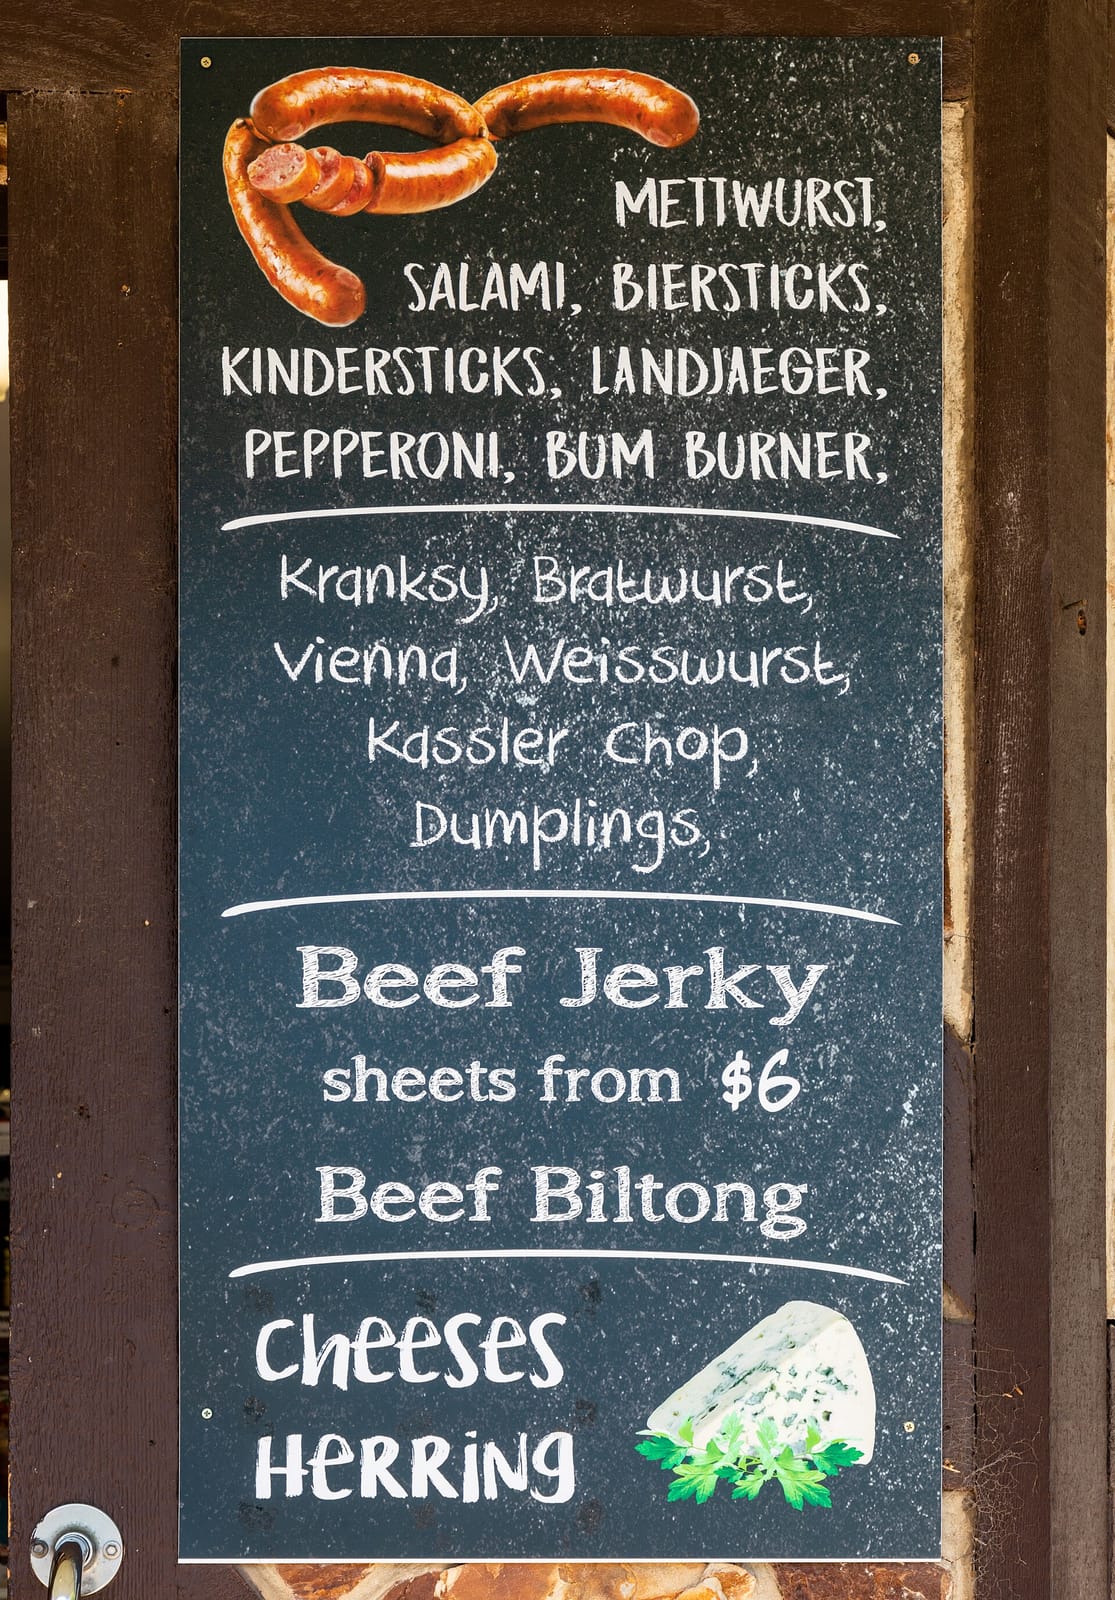 METTWURST,
SALAMI, BIERSTICKS,
KINDERSTICKS, LANDJAEGER,
PEPPERONI, BUM BURNER,
Kranksy, Bratwurst,
Vienna, Weisswurst,
Kassler Chop,
Dumplings,
Beef Jerky
sheets from $6
Beef Biltong
CHeeSeS
HeRRiNg